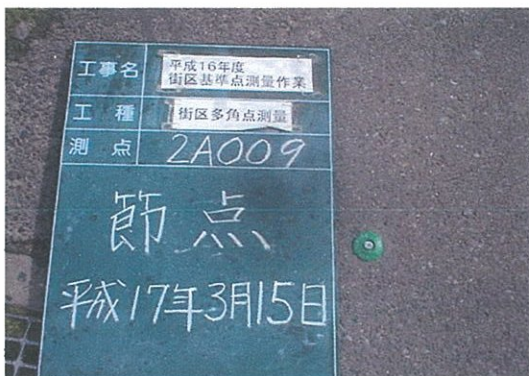 工事名 平成16年度
街区基準点測量作業
工種 街区多角点測量
測点 2A009
節点
平成17年3月15日